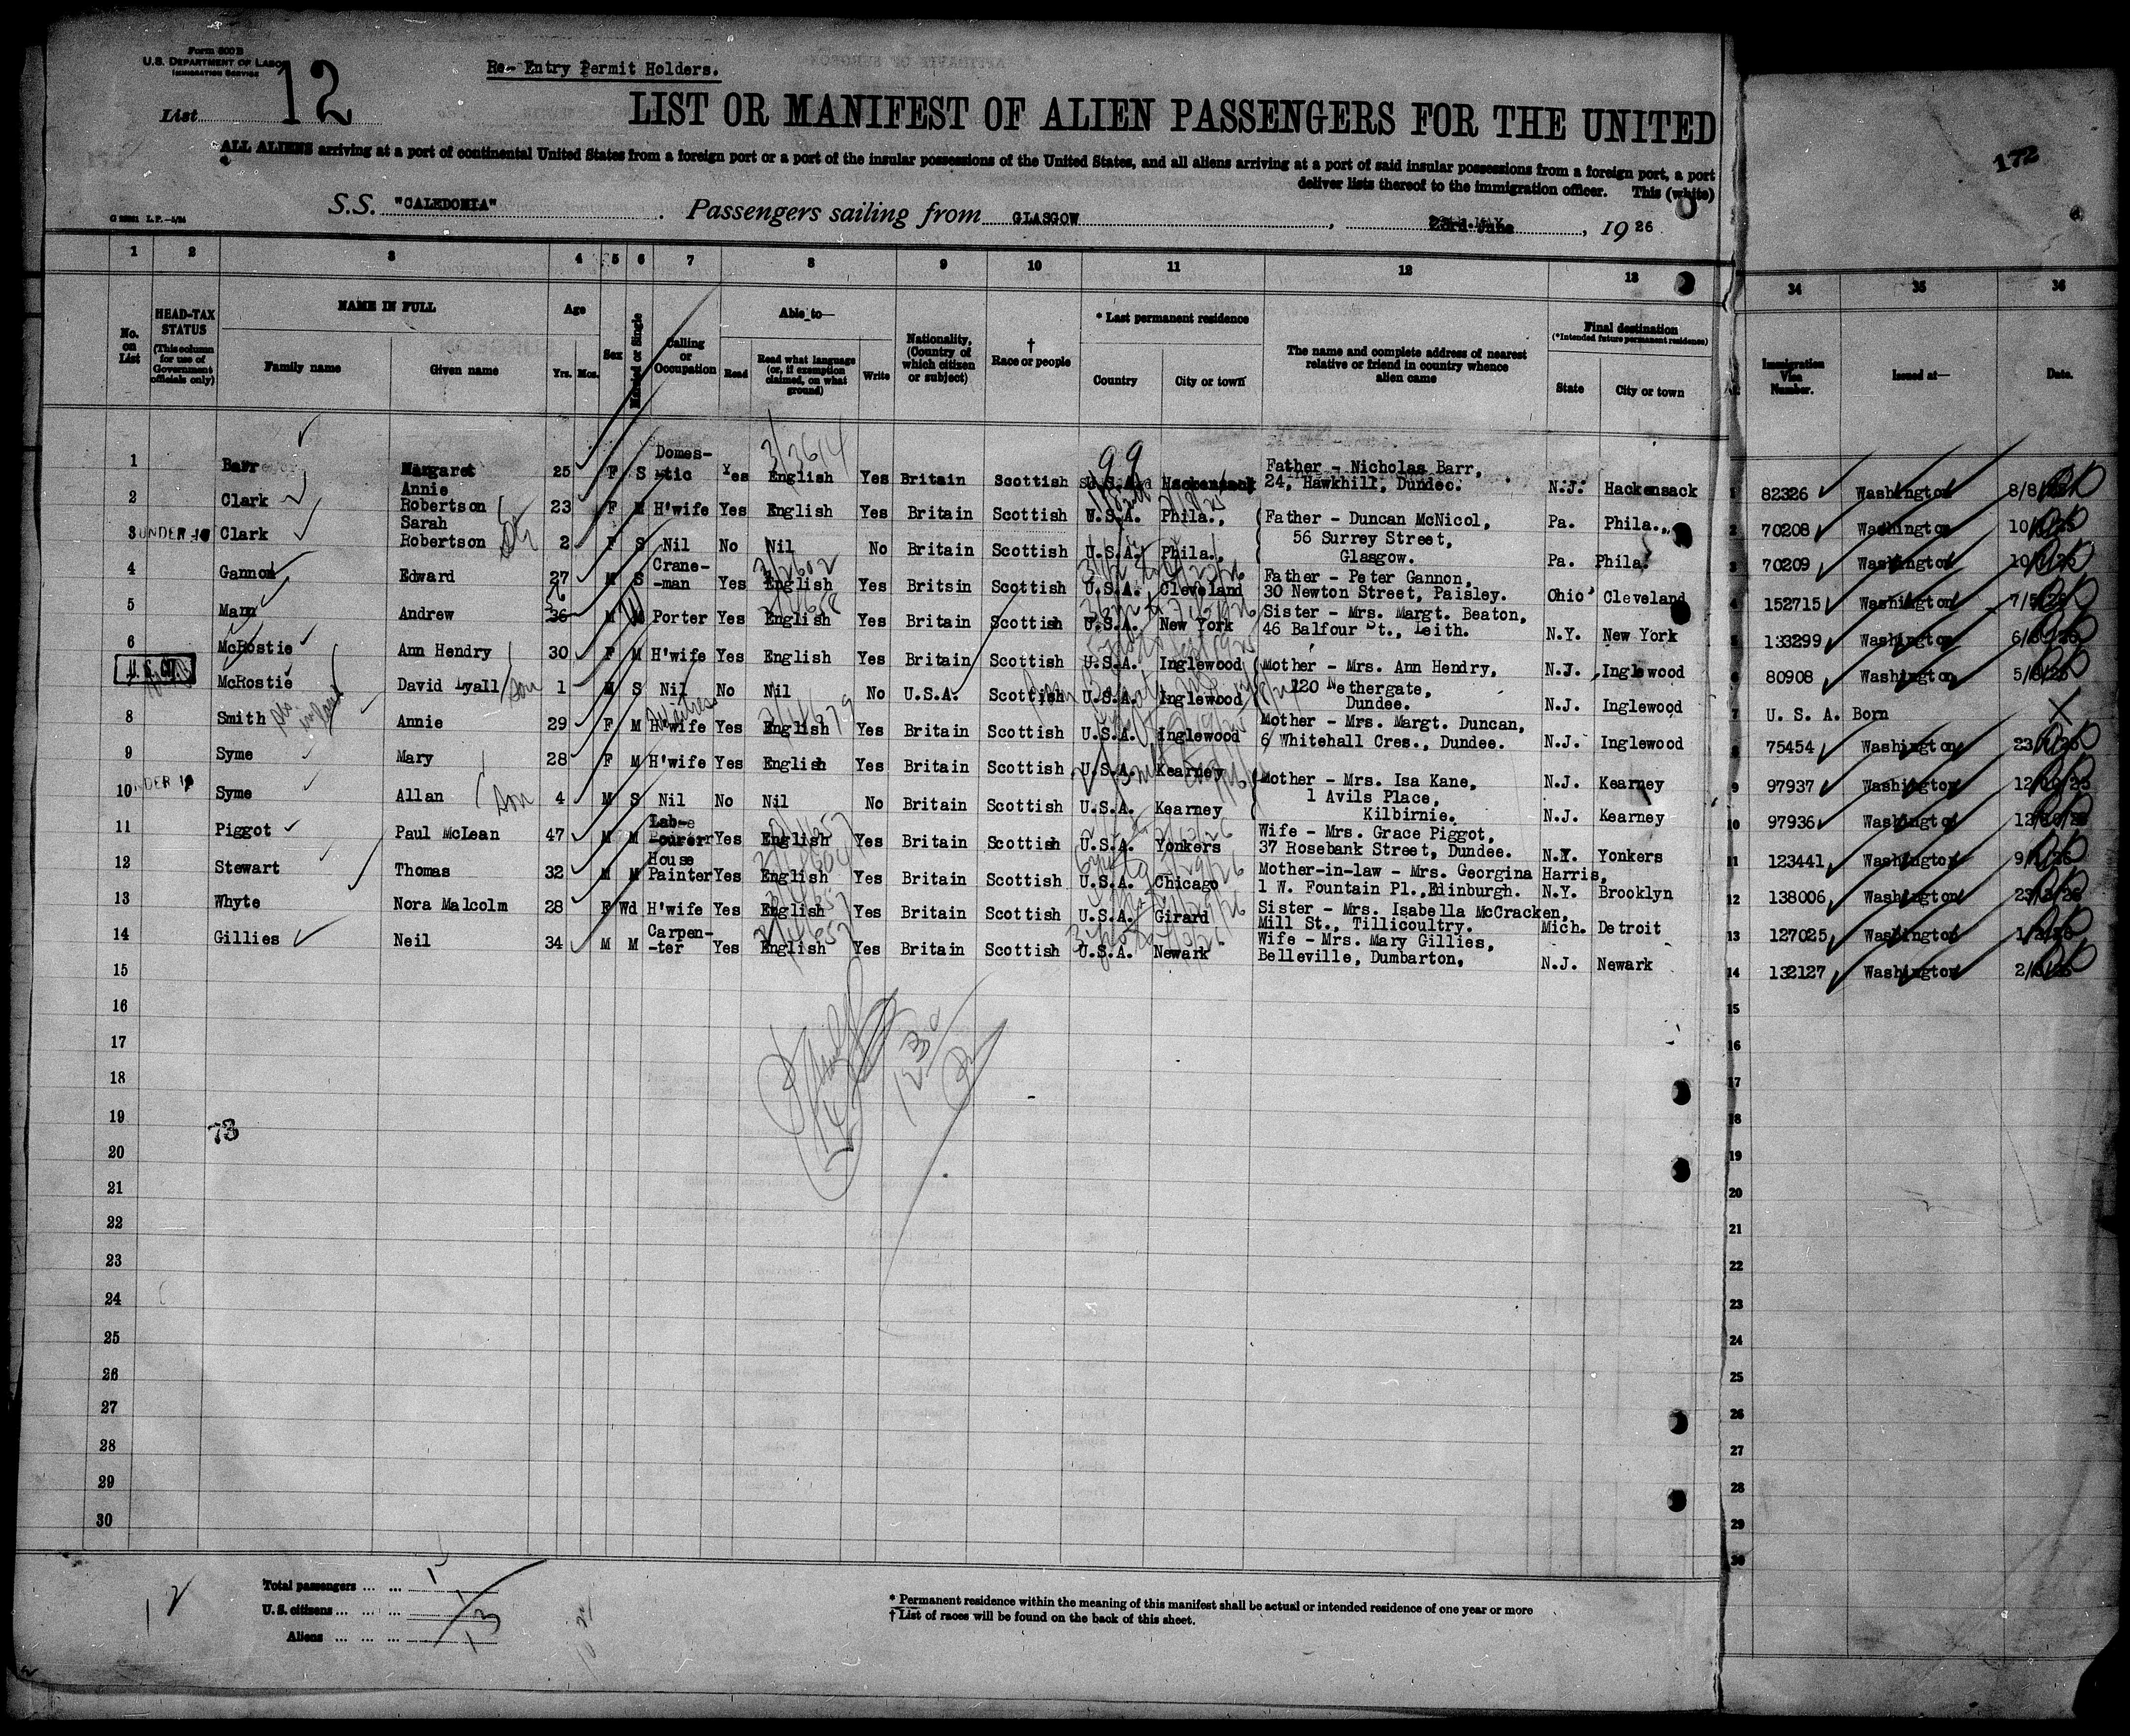 Form 500 B
U.S. DEPARTMENT OF LABOR
IMMIGRATION SERVICE
List 12
Re- Entry Permit Holders.
LIST OR MANIFEST OF ALIEN PASSENGERS FOR THE UNITED
ALL ALIENS arriving at a port of continental United States from a foreign port or a port of the insular possessions of the United States, and all aliens arriving at a port of said insular possessions from a foreign port, a port
deliver lists thereof to the immigration officer. This (white)
172
S.S. "CALEDONIA" . Passengers sailing from GLASGOW , 23rd June , 19 26
1 2 3 4 5 6 7 8 9 10 11 12 13 34 35 36
No. on List
HEAD-TAX STATUS (This column for use of Government officials only)
NAME IN FULL
Family name Given name
Age Yrs. Mos.
Sex
Married or Single
Calling or Occupation
Able to—
Read Read what language (or, if exemption claimed, on what ground) Write
Nationality, (Country of which citizen or subject)
† Race or people
* Last permanent residence
Country City or town
The name and complete address of nearest relative or friend in country whence alien came
Final destination (*Intended future permanent residence)
State City or town
Immigration Visa Number. Issued at— Date.
1 Barr Margaret 25 F S Domes- -tic Yes English Yes Britain Scottish U.S.A. Hackensack Father - Nicholas Barr, 24, Hawkhill, Dundee. N.J. Hackensack 1 82326 Washington 8/8/
2 Clark Annie Robertson 23 F M H'wife Yes English Yes Britain Scottish U.S.A. Phila., Father - Duncan McNicol, Pa. Phila., 2 70208 Washington 10/
3 UNDER 10 Clark Sarah Robertson 2 F S Nil No Nil No Britain Scottish U.S.A. Phila., 56 Surrey Street, Glasgow. Pa. Phila. 3 70209 Washington 10/
4 Gannon Edward 27 M S Crane- -man Yes English Yes Britain Scottish U.S.A. Cleveland Father - Peter Gannon, 30 Newton Street, Paisley. Ohio Cleveland 4 152715 Washington 7/5/26
5 Mann Andrew 36 M M Porter Yes English Yes Britain Scottish U.S.A. New York Sister - Mrs. Margt. Beaton, 46 Balfour St., Leith. N.Y. New York 5 133299 Washington 6/
6 McRostie Ann Hendry 30 F M H'wife Yes English Yes Britain Scottish U.S.A. Inglewood Mother - Mrs. Ann Hendry, N.J. Inglewood 6 80908 Washington 5/
7 U.S. CIT. McRostie David Lyall son 1 M S Nil No Nil No U.S.A. Scottish U.S.A. Inglewood 120 Nethergate, Dundee. N.J. Inglewood 7 U. S. A. Born X
8 Smith Annie 29 F M H'wife Yes English Yes Britain Scottish U.S.A. Inglewood Mother - Mrs. Margt. Duncan, 6 Whitehall Cres., Dundee. N.J. Inglewood 8 75454 Washington 23/
9 Syme Mary 28 F M H'wife Yes English Yes Britain Scottish U.S.A. Kearney Mother - Mrs. Isa Kane, N.J. Kearney 9 97937 Washington 12/10/25
10 UNDER 10 Syme Allan son 4 M S Nil No Nil No Britain Scottish U.S.A. Kearney 1 Avils Place, Kilbirnie. N.J. Kearney 10 97936 Washington 12/10/25
11 Piggot Paul McLean 47 M M Lab- -ourer Yes English Yes Britain Scottish U.S.A. Yonkers Wife - Mrs. Grace Piggot, 37 Rosebank Street, Dundee. N.Y. Yonkers 11 123441 Washington 9/
12 Stewart Thomas 32 M M House Painter Yes English Yes Britain Scottish U.S.A. Chicago Mother-in-law - Mrs. Georgina Harris, 1 W. Fountain Pl., Edinburgh. N.Y. Brooklyn 12 138006 Washington 23/
13 Whyte Nora Malcolm 28 F Wd H'wife Yes English Yes Britain Scottish U.S.A. Girard Sister - Mrs. Isabella McCracken, Mill St., Tillicoultry. Mich. Detroit 13 127025 Washington 1/
14 Gillies Neil 34 M M Carpen- -ter Yes English Yes Britain Scottish U.S.A. Newark Wife - Mrs. Mary Gillies, Belleville, Dumbarton, N.J. Newark 14 132127 Washington 2/
15 15
16 16
17 17
18 18
19 73 19
20 20
21 21
22 22
23 23
24 24
25 25
26 26
27 27
28 28
29 29
30 30
Total passengers ... ...
U.S. citizens ... ... ... 1
Aliens ... ... ... 13
12
* Permanent residence within the meaning of this manifest shall be actual or intended residence of one year or more
† List of races will be found on the back of this sheet.